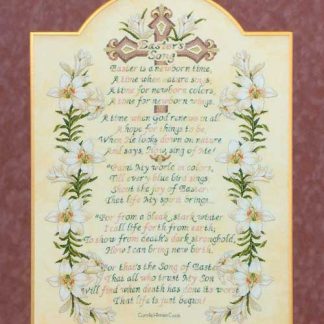 Easter's
Song
Easter is a newborn time,
A time when nature sings,
A time for newborn colors,
A time for newborn wings.
A time when God renews in all
A hope for things to be,
When He looks down on nature
And says, Sing of Me!
"Paint My world in colors,
Till every blue bird sings
Shout the joy of Easter
That life My spirit brings.
"For from a bleak, stark winter
I call life forth from earth;
To show from death's dark stronghold,
How I can bring new birth.
For that's the Song of Easter
That all who trust My Son
Will find when death has done its worst
That life is just begun!